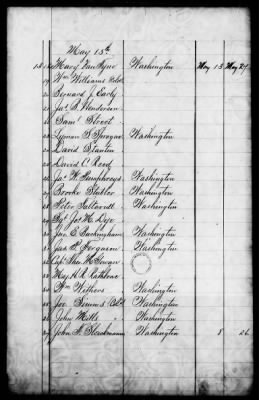 May 13th
15 Henry Van Washington May 13 May 27
Wm Williams
Bernard J. Early
Jas. R. Henderson
Saml Street
Lyman S. Sprague Washington
David Stanton
David C. Reed
Jas. W. Pumphrey Washington
Brooke Stabler Washington
Peter Taltavull Washington
Sgt. Jos. M. Dye
Jas. E. Buckingham Washington
Jas. P. Ferguson Washington
Capt. Theo. McGowan
Maj. H. R. Rathbone
Wm Withers Washington
Joe Simms Washington
John Miles "
John F. Washington 8 26